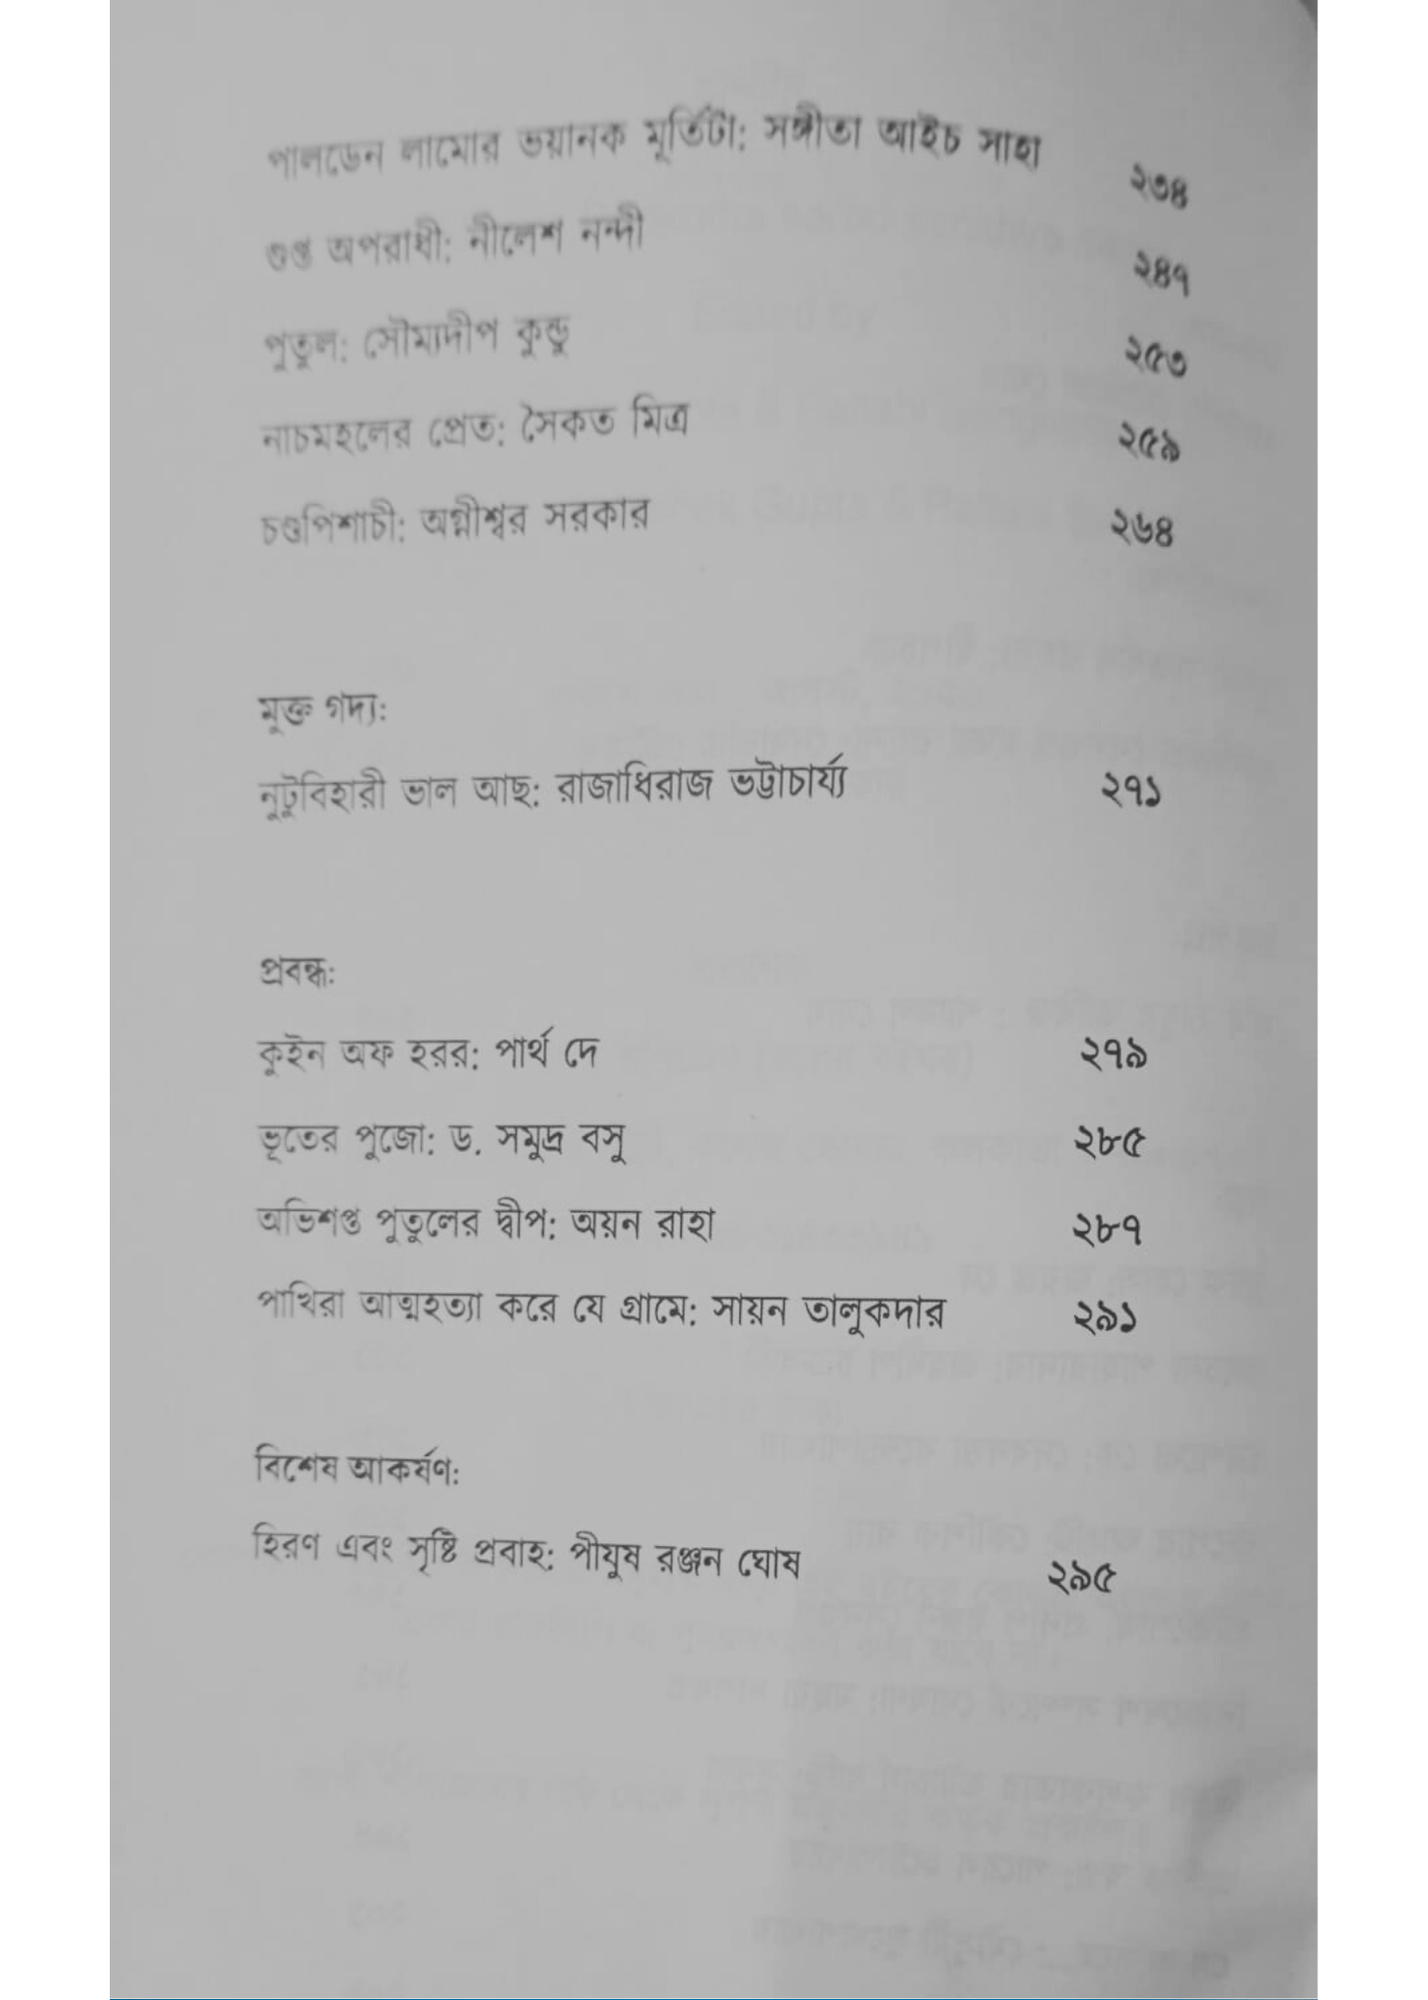 পালডেন লামোর ভয়ানক মূর্তিটা: সঙ্গীতা আইচ সাহা ২৩৪
গুপ্ত অপরাধী: নীলেশ নন্দী ২৪৭
পুতুল: সৌম্যদীপ কুন্ডু ২৫৩
নাচমহলের প্রেত: সৈকত মিত্র ২৫৯
চণ্ডপিশাচী: অগ্নীশ্বর সরকার ২৬৪
মুক্ত গদ্য:
নুটুবিহারী ভাল আছ: রাজাধিরাজ ভট্টাচার্য্য ২৭১
প্রবন্ধ:
কুইন অফ হরর: পার্থ দে ২৭৯
ভূতের পুজো: ড. সমুদ্র বসু ২৮৫
অভিশপ্ত পুতুলের দ্বীপ: অয়ন রাহা ২৮৭
পাখিরা আত্মহত্যা করে যে গ্রামে: সায়ন তালুকদার ২৯১
বিশেষ আকর্ষণ:
হিরণ এবং সৃষ্টি প্রবাহ: পীযুষ রঞ্জন ঘোষ ২৯৫